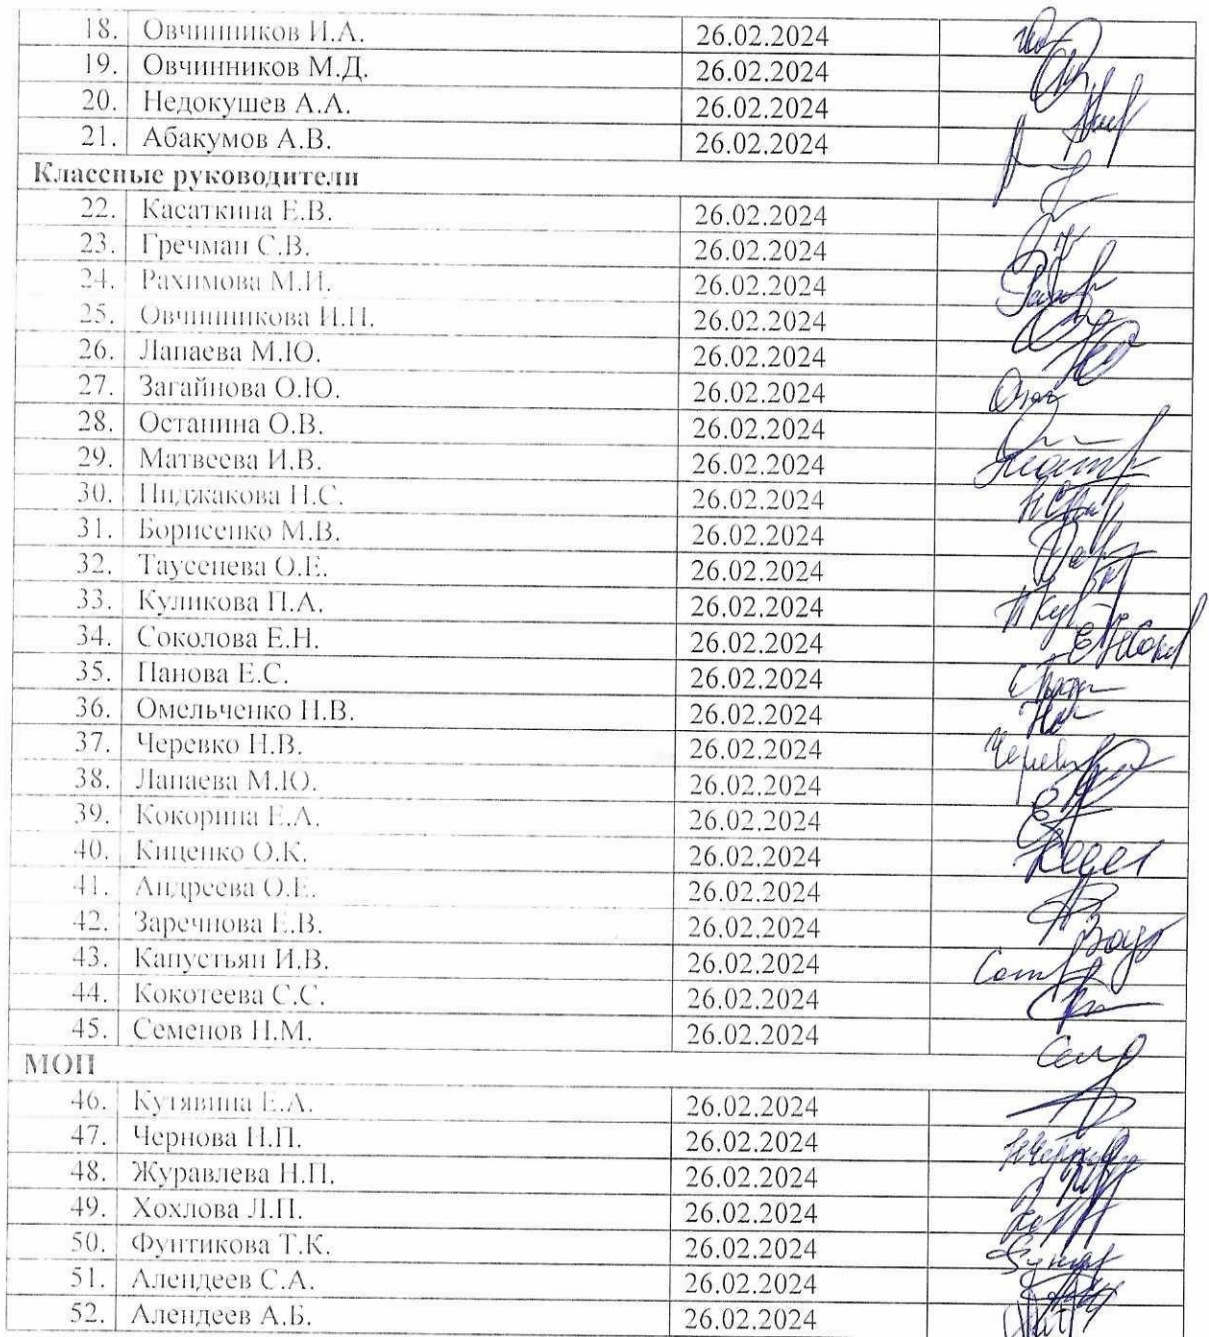 18. Овчинников И.А. 26.02.2024
19. Овчинников М.Д. 26.02.2024
20. Недокушев А.А. 26.02.2024
21. Абакумов А.В. 26.02.2024
Классные руководители
22. Касаткина Е.В. 26.02.2024
23. Гречман С.В. 26.02.2024
24. Рахимова М.И. 26.02.2024
25. Овчинникова И.П. 26.02.2024
26. Лапаева М.Ю. 26.02.2024
27. Загайнова О.Ю. 26.02.2024
28. Останина О.В. 26.02.2024
29. Матвеева И.В. 26.02.2024
30. Пиджакова Н.С. 26.02.2024
31. Борисенко М.В. 26.02.2024
32. Таусенева О.Е. 26.02.2024
33. Куликова П.А. 26.02.2024
34. Соколова Е.Н. 26.02.2024
35. Панова Е.С. 26.02.2024
36. Омельченко Н.В. 26.02.2024
37. Черевко Н.В. 26.02.2024
38. Лапаева М.Ю. 26.02.2024
39. Кокорина Е.А. 26.02.2024
40. Киценко О.К. 26.02.2024
41. Андреева О.Е. 26.02.2024
42. Заречнова Е.В. 26.02.2024
43. Капустьян И.В. 26.02.2024
44. Кокотеева С.С. 26.02.2024
45. Семенов Н.М. 26.02.2024
МОП
46. Кутявина Е.А. 26.02.2024
47. Чернова Н.П. 26.02.2024
48. Журавлева Н.П. 26.02.2024
49. Хохлова Л.П. 26.02.2024
50. Фунтикова Т.К. 26.02.2024
51. Алендеев С.А. 26.02.2024
52. Алендеев А.Б. 26.02.2024